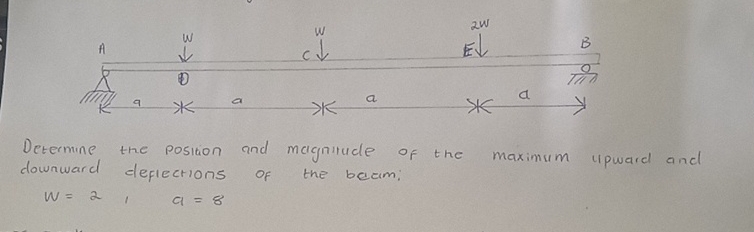 W W 2W
A C E B
D
a a a a
Determine the position and magnitude of the maximum upward and
downward deflections of the beam;
W = 2 , a = 8